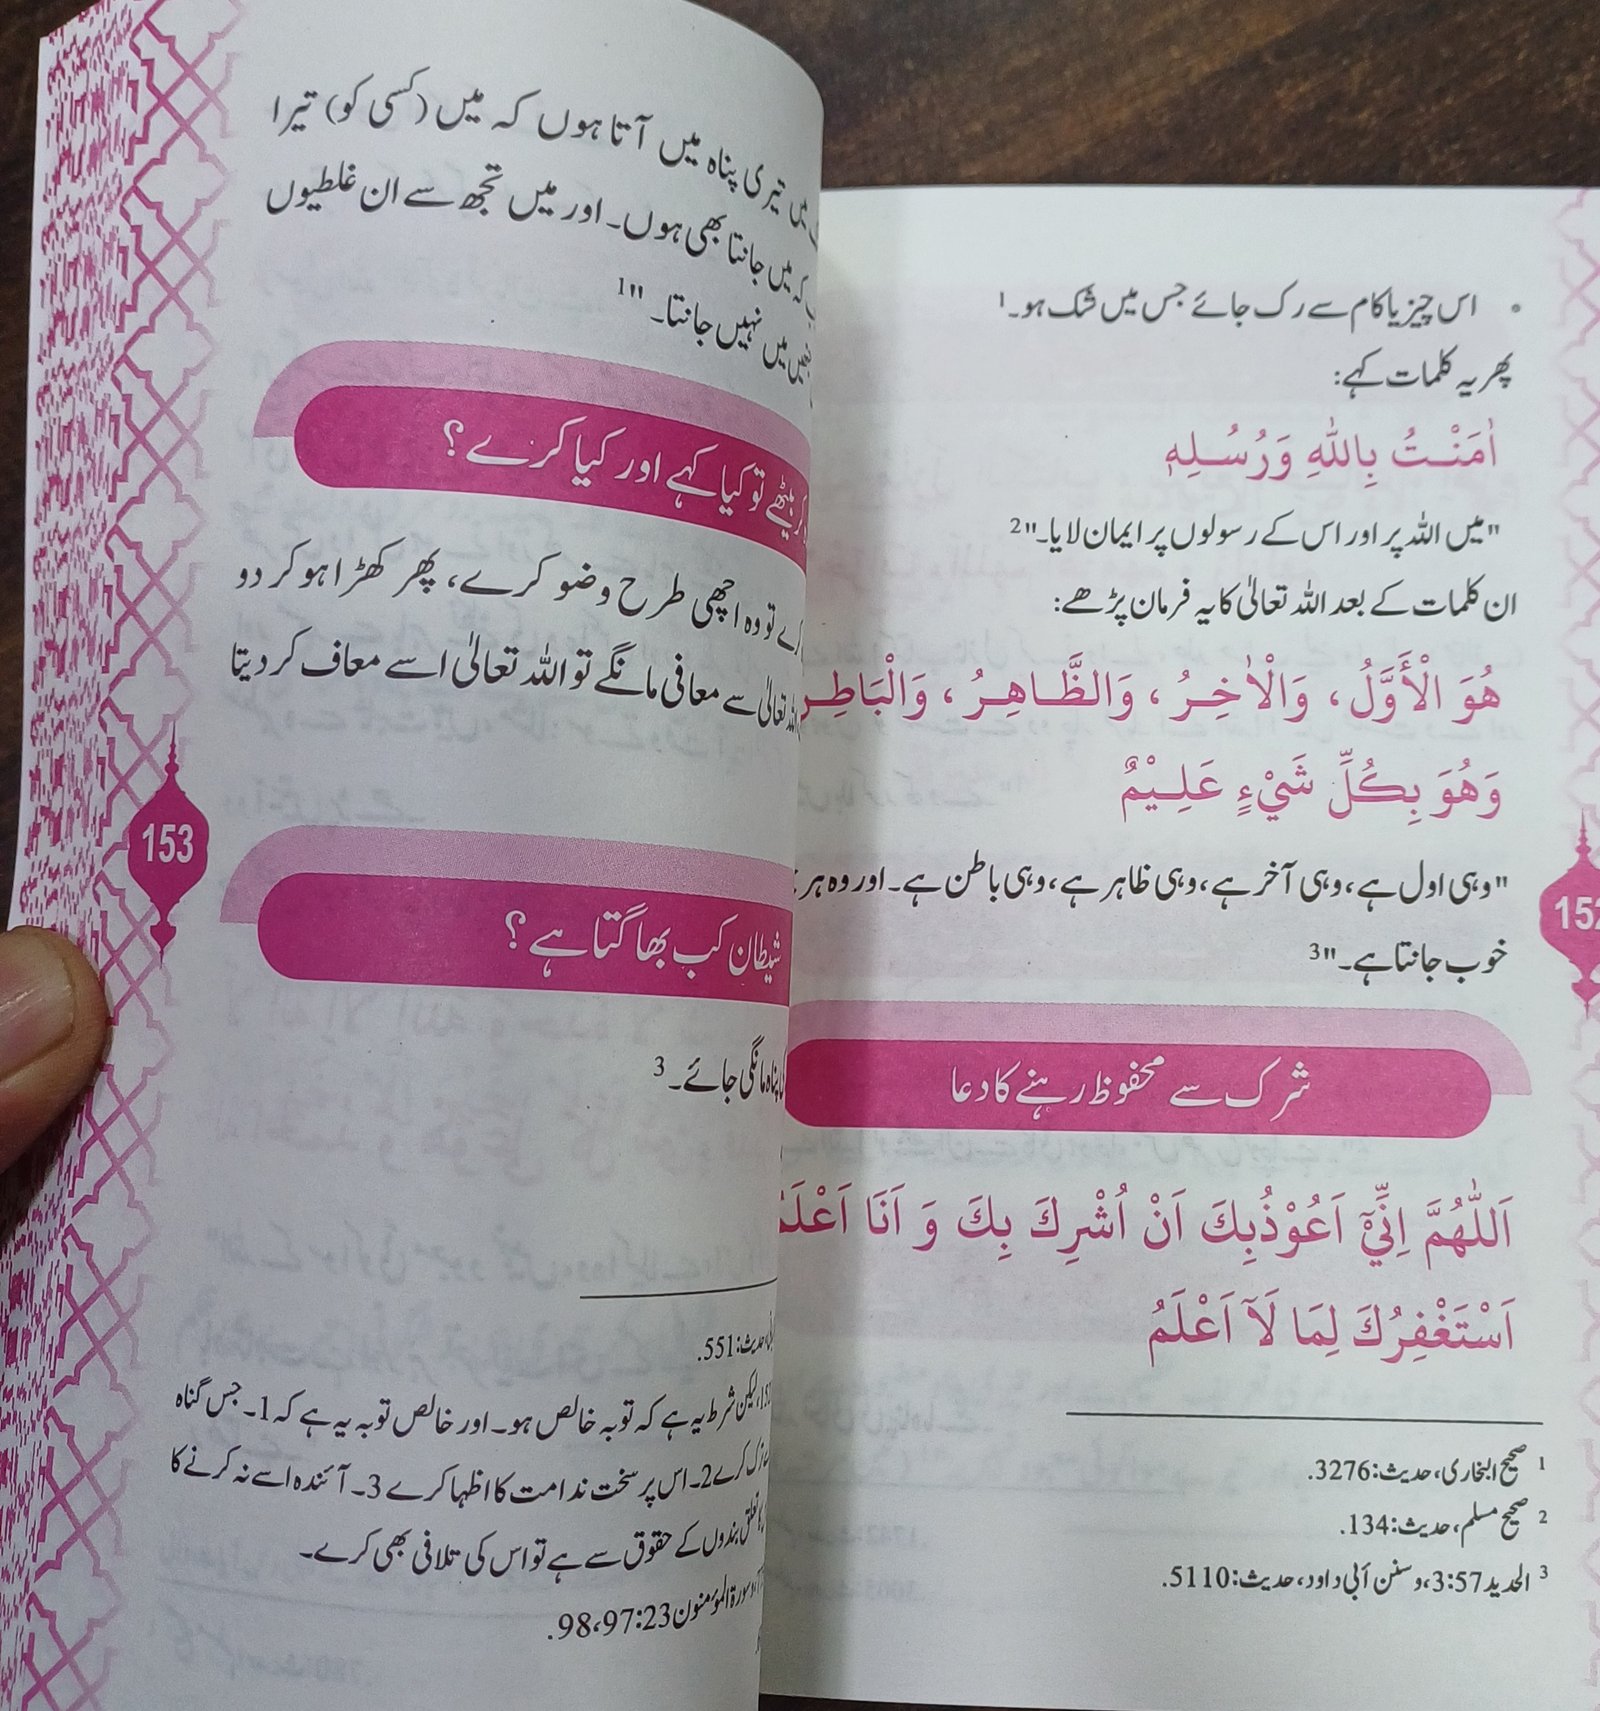 اس چیز یا کام سے رک جائے جس میں شک ہو۔ 1
پھر یہ کلمات کہے:
اٰمَنْتُ بِاللّٰهِ وَرُسُلِهٖ
"میں اللہ پر اور اس کے رسولوں پر ایمان لایا۔" 2
ان کلمات کے بعد اللہ تعالیٰ کا یہ فرمان پڑھے:
هُوَ الْأَوَّلُ، وَالْاٰخِرُ، وَالظَّاهِرُ، وَالْبَاطِنُ
وَهُوَ بِكُلِّ شَيْءٍ عَلِيْمٌ
"وہی اول ہے، وہی آخر ہے، وہی ظاہر ہے، وہی باطن ہے۔ اور وہ ہر
خوب جانتا ہے۔" 3
152
شرک سے محفوظ رہنے کا دعا
اَللّٰهُمَّ اِنِّيْٓ اَعُوْذُبِكَ اَنْ اُشْرِكَ بِكَ وَ اَنَا اَعْلَمُ
اَسْتَغْفِرُكَ لِمَا لَآ اَعْلَمُ
1 صحیح البخاری، حدیث: 3276.
2 صحیح مسلم، حدیث: 134.
3 الحدید 3:57، و سنن أبی داود، حدیث: 5110.
میں تیری پناہ میں آتا ہوں کہ میں (کسی کو) تیرا
کہ میں جانتا بھی ہوں۔ اور میں تجھ سے ان غلطیوں
میں نہیں جانتا۔" 1
بیٹھے تو کیا کہے اور کیا کرے؟
تو وہ اچھی طرح وضو کرے، پھر کھڑا ہو کر دو
اللہ تعالیٰ سے معافی مانگے تو اللہ تعالیٰ اسے معاف کر دیتا
153
شیطان کب بھاگتا ہے؟
پناہ مانگی جائے۔ 3
حدیث: 551.
لیکن شرط یہ ہے کہ توبہ خالص ہو۔ اور خالص توبہ یہ ہے کہ 1۔ جس گناہ
کرے 2۔ اس پر سخت ندامت کا اظہا کرے 3۔ آئندہ اسے نہ کرنے کا
تعلق بندوں کے حقوق سے ہے تو اس کی تلافی بھی کرے۔
سورۃ المؤمنون 23:97،98.